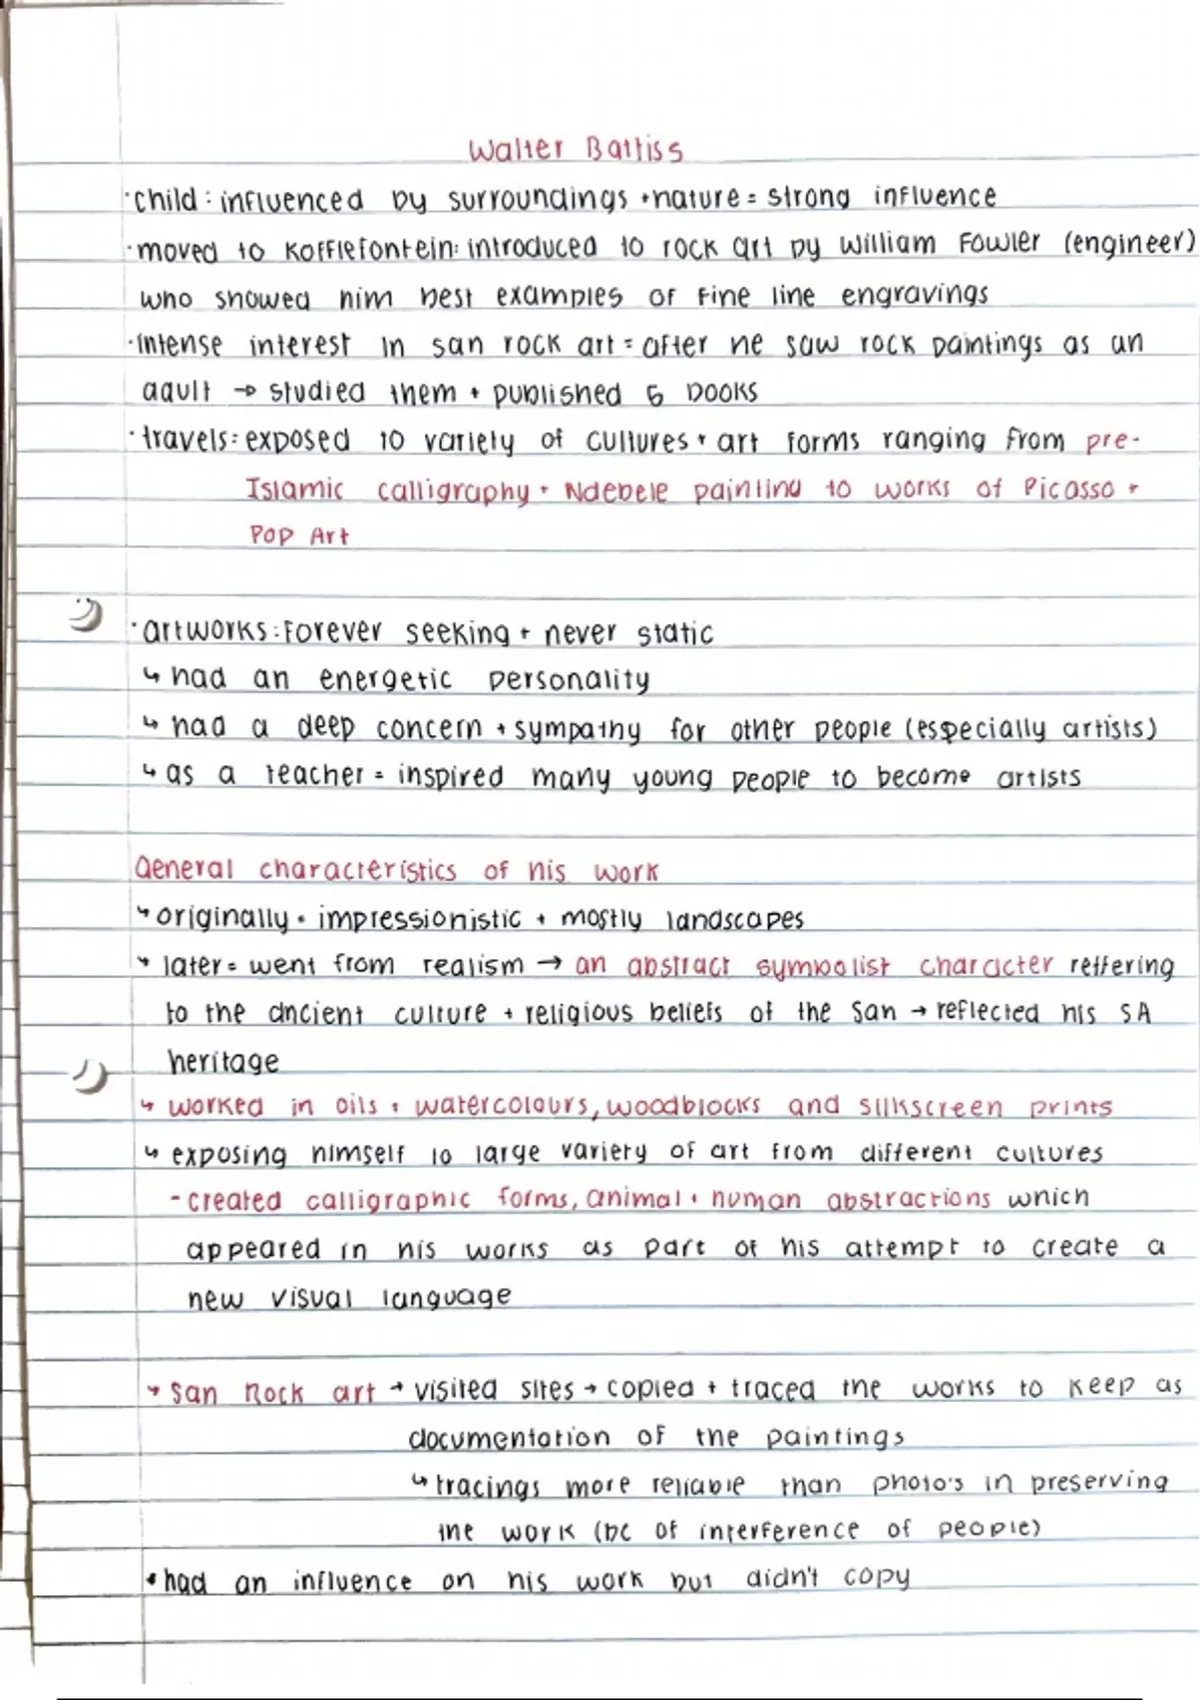 Walter Battiss
·child: influenced by surroundings + nature = strong influence
·moved to Koffiefontein: introduced to rock art by William Fowler (engineer)
who showed him best examples of fine line engravings
·Intense interest in san rock art = after he saw rock paintings as an
adult → studied them + published 5 books
·travels: exposed to variety of cultures + art forms ranging from pre-
Islamic calligraphy + Ndebele painting to works of Picasso +
Pop Art
·artworks: forever seeking + never static
↳ had an energetic personality
↳ had a deep concern + sympathy for other people (especially artists)
↳ as a teacher = inspired many young people to become artists
General characteristics of his work
↳ originally = impressionistic + mostly landscapes
↳ later = went from realism → an abstract symbolist character reffering
to the ancient culture + religious beliefs of the San → reflected his SA
heritage
↳ worked in oils + watercolours, woodblocks and silkscreen prints
↳ exposing himself to large variety of art from different cultures
- created calligraphic forms, animal + human abstractions which
appeared in his works as part of his attempt to create a
new visual language
↳ San Rock art → visited sites → copied + traced the works to keep as
documentation of the paintings
↳ tracings more reliable than photo's in preserving
the work (bc of interference of people)
• had an influence on his work but didn't copy